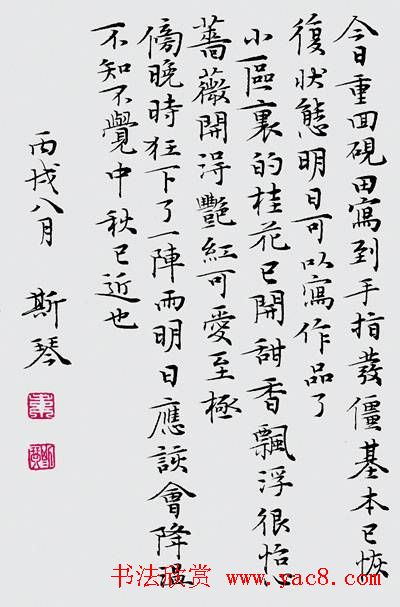 今日重面硯田寫到手指發僵基本已恢
復狀態明日可以寫作品了
小區裏的桂花已開甜香飄浮很怡心
薔薇開得艷紅可愛至極
傍晚時狂下了一陣雨明日應該會降溫
不知不覺中秋已近也
丙戌八月 斯琴
书法欣赏 www.yac8.com